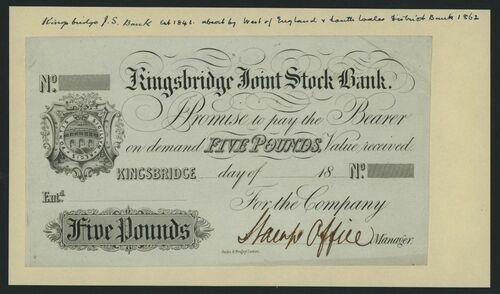 Kingsbridge J.S. Bank Est 1841. absorb by West of England & South Wales District Bank 1862
No.
Kingsbridge Joint Stock Bank.
Promise to pay the Bearer
on demand FIVE POUNDS, Value received.
KINGSBRIDGE day of 18 No.
Entd.
For the Company
Five Pounds
Stamp Office Manager.